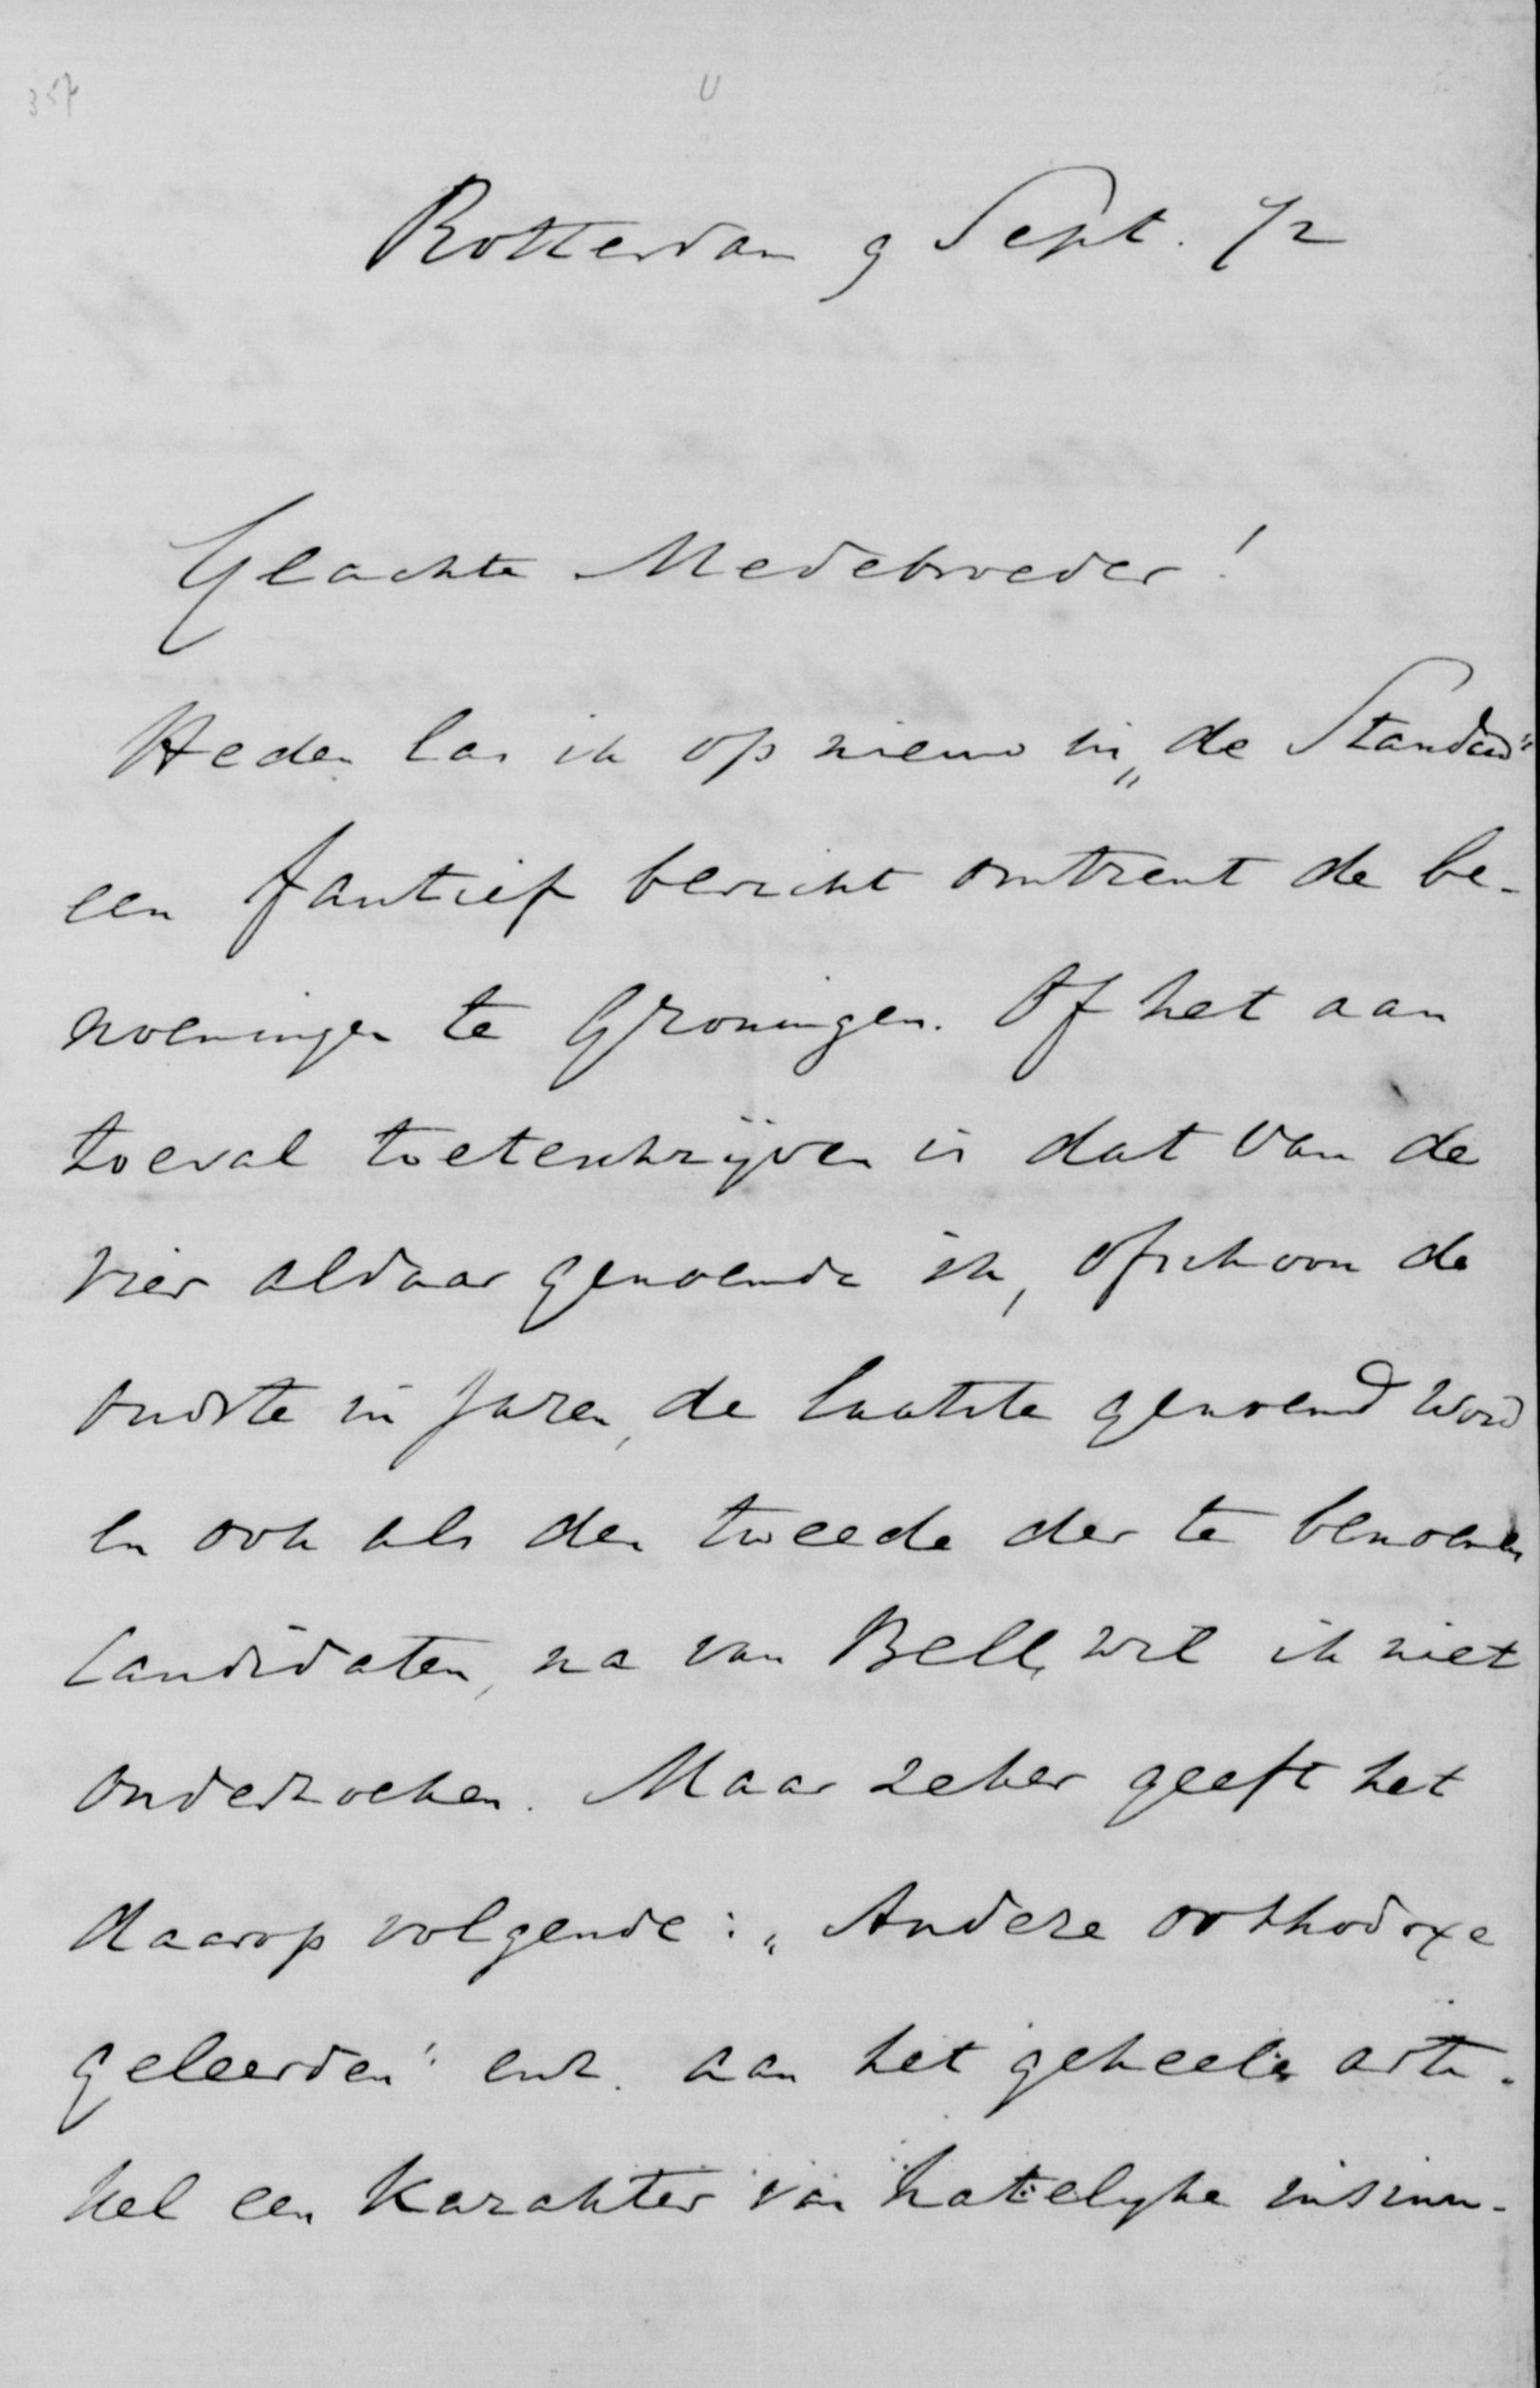 357
Rotterdam 9 Sept. 72
Geachte Medebroeder!
Heden las ik op nieuw in „de Standard"
een fautief bericht omtrent de be-
noemingen te Groningen. Of het aan
toeval toeteschrijven is dat van de
vier aldaar genoemde ik, ofschoon de
oudste in jaren, de laatste genoemd word
en ook als den tweede der te benoemen
Candidaten, na van Bell, wil ik niet
onderzoeken. Maar zeker geeft het
daarop volgende: „Andere orthodoxe
geleerden" enz. aan het geheele arti-
kel een karakter van hatelyke insinu-